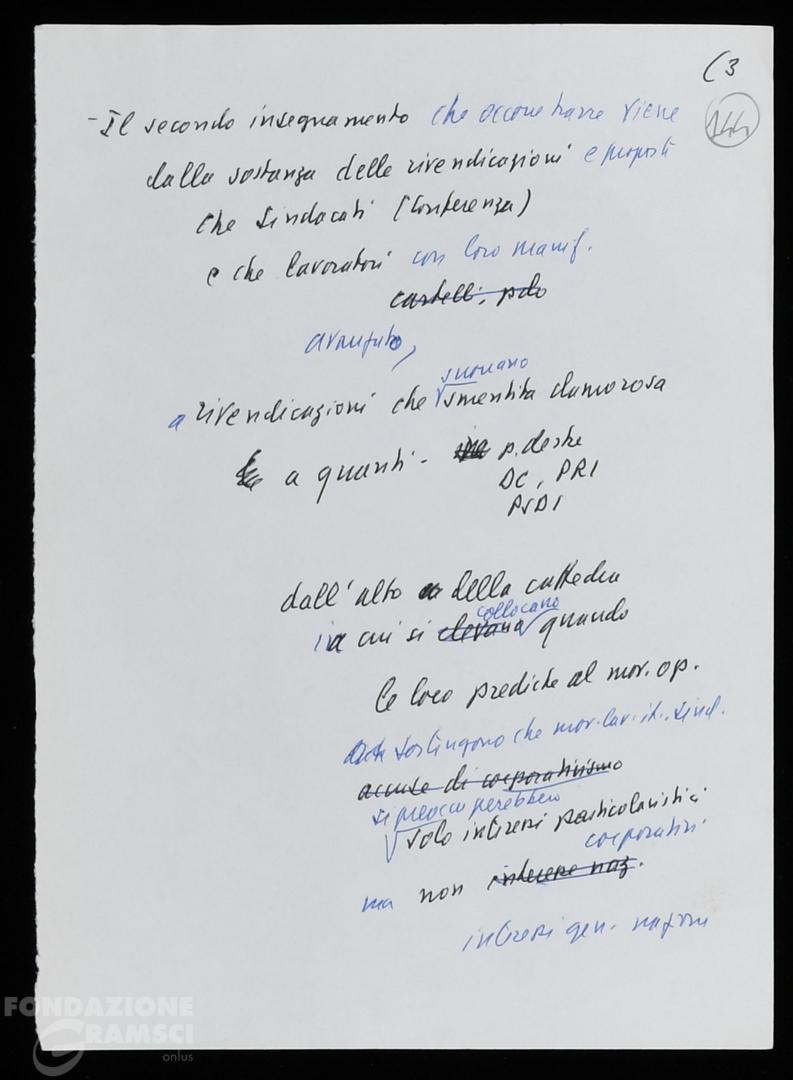 (3
144
- Il secondo insegnamento che occorre trarre viene
dalla sostanza delle rivendicazioni e proposte
che Sindacati (Conferenza)
e che lavoratori con loro manif.
cartelli, pdo
avanzato,
a rivendicazioni che suonano smentita clamorosa
a quanti - p. destre
DC, PRI
PSDI
dall'alto della cattedra
in cui si elevano collocano quando
le loro prediche al mov. op.
sostengono che mov. lav. it. sind.
accuse di corporativismo
si preoccuperebbero
solo interessi particolaristici
corporativi
ma non interesse naz.
interessi gen. nazion
FONDAZIONE
GRAMSCI
onlus